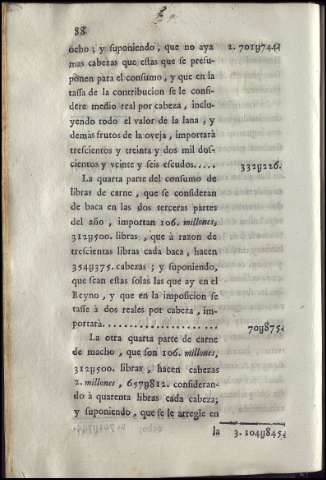 88
ocho; y suponiendo, que no aya 2. 701y744
mas cabezas que estas que se presu-
ponen para el consumo, y que en la
tassa de la contribucion se le consi-
dere medio real por cabeza, inclu-
yendo todo el valor de la lana, y
demàs frutos de la oveja, importarà
trescientos y treinta y dos mil dos-
cientos y veinte y seis escudos..... 332y226.
La quarta parte del consumo de
libras de carne, que se consideran
de baca en las dos terceras partes
del año, importan 106. millones,
312y500. libras, que à razon de
trescientas libras cada baca, hacen
354y375. cabezas; y suponiendo,
que sean estas solas las que ay en el
Reyno, y que en la imposicion se
tasse à dos reales por cabeza, im-
portarà. . . . . . . . . . . . . . . . . . . 70y875
La otra quarta parte de carne
de macho, que son 106. millones,
312y500. libras, hacen cabezas
2. millones, 657y812. consideran-
do à quarenta libras cada cabeza;
y suponiendo, que se le arregle en
la 3. 104y845